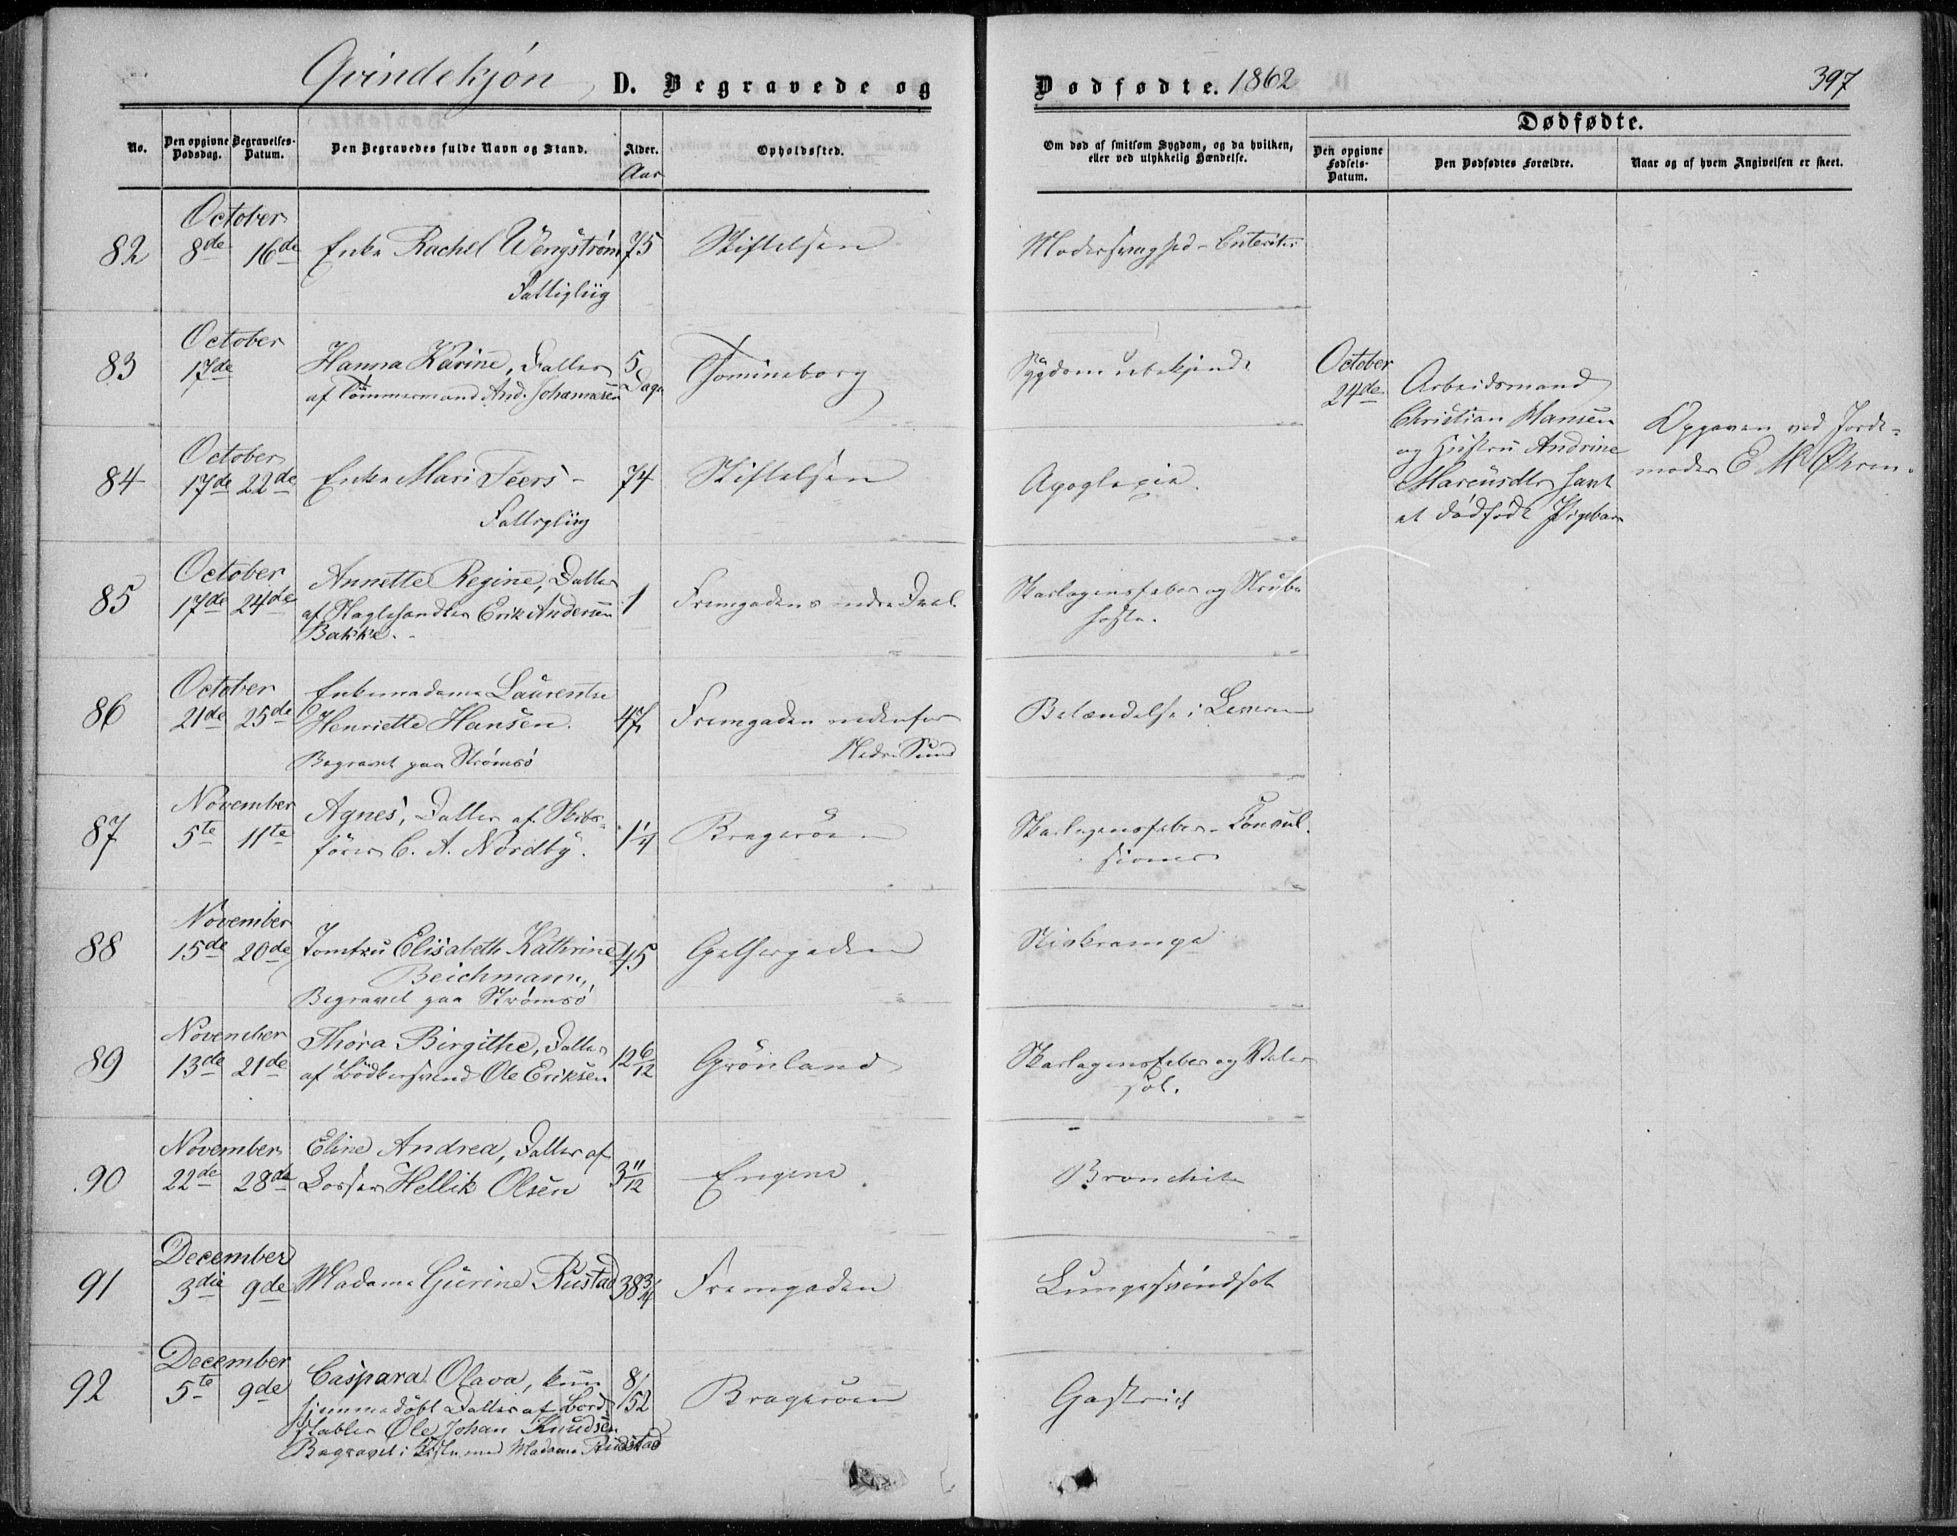 Qvindekjøn D. Begravede og
Dødfødte. 1862 397
No. Den opgivne Dødsdag. Begravelses-Datum. Den Begravedes fulde Navn og Stand. Alder. Aar Opholdssted.
Om død af smitsom Sygdom, og da hvilken, eller ved ulykkelig Hændelse.
Dødfødte.
Den opgivne Fødsels-Datum. Den Dødfødtes Forældre. Naar og af hvem Angivelsen er skeet.
October
82 8de 16de Enke Rachel Wengstrøm 75 Stiftelsen
Fattigliig
October
83 17de Hanna Karine, Datter 5 Dage Tomineborg
af Tømmermand And. Johannesen
October
84 17de 22de Enke Mari Feers 74 Stiftelsen
Fattigliig
October
85 17de 24de Annette Regine, Datter 1 Fremgadens nedre Deel.
af Høglehandler Erik Andersen
Bakke.
October
86 21de 25de Enkemadame Laurentse
Henriette Hansen. 47 Fremgaden nedenfor
Nedre Sund
Begravet paa Strømsø
November
87 5te 11te Agnes, Datter af Skibs-
fører C. A. Nordby. 1¼ Bragerøen
November
88 15de 20de Jomfru Elisabeth Kathrine 45 Gethergaden
Beichmann,
Begravet paa Strømsø
November
89 13de 21de Thora Birgithe, Datter 12 6/12 Grønland
af Bødkersvend Ole Eriksen
November
90 22de 28de Eline Andrea, Datter af
Losser Hellik Olsen 3 11/12 Engene
December
91 3die 9de Madame Gurine Rustad 38¾ Fremgaden
December
92 5te 9de Caspara Olava, kun 8/52 Bragerøen
hjemmedøbt Datter af Bord-
stabler Ole Johan Knudsen
Begravet i Kiste med Madame Rustad
Alderssvaghed - Enterites
Sygdom ubekjendt
Apoplexia.
Skarlagensfeber og Strube
hoste.
Betændelse i Leveren
Skarlagensfeber - Convul-
sioner
Stivkrampe
Skarlagensfeber og Vater
sot.
Bronchit
Lungesvindsot
Gastrisk
October
24de Arbeidsmand
Christian Hansen
og Hustru Andrine
Mareusdtr havt
et dødfødt Pigebarn
Opgaven ved Jorde-
moder E M Øhren.